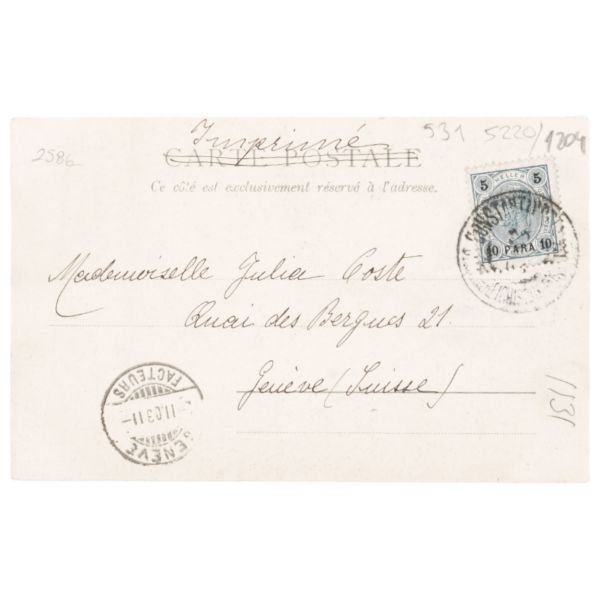 Imprimé
531 5220/1204
2586
CARTE POSTALE
Ce côté est exclusivement réservé à l'adresse.
5 HELLER 5
10 PARA 10
CONSTANTINOPEL
Mademoiselle Julia Coste
Quai des Bergues 21.
Genève (Suisse)
GENÈVE
11.03.11
FACTEURS
1131